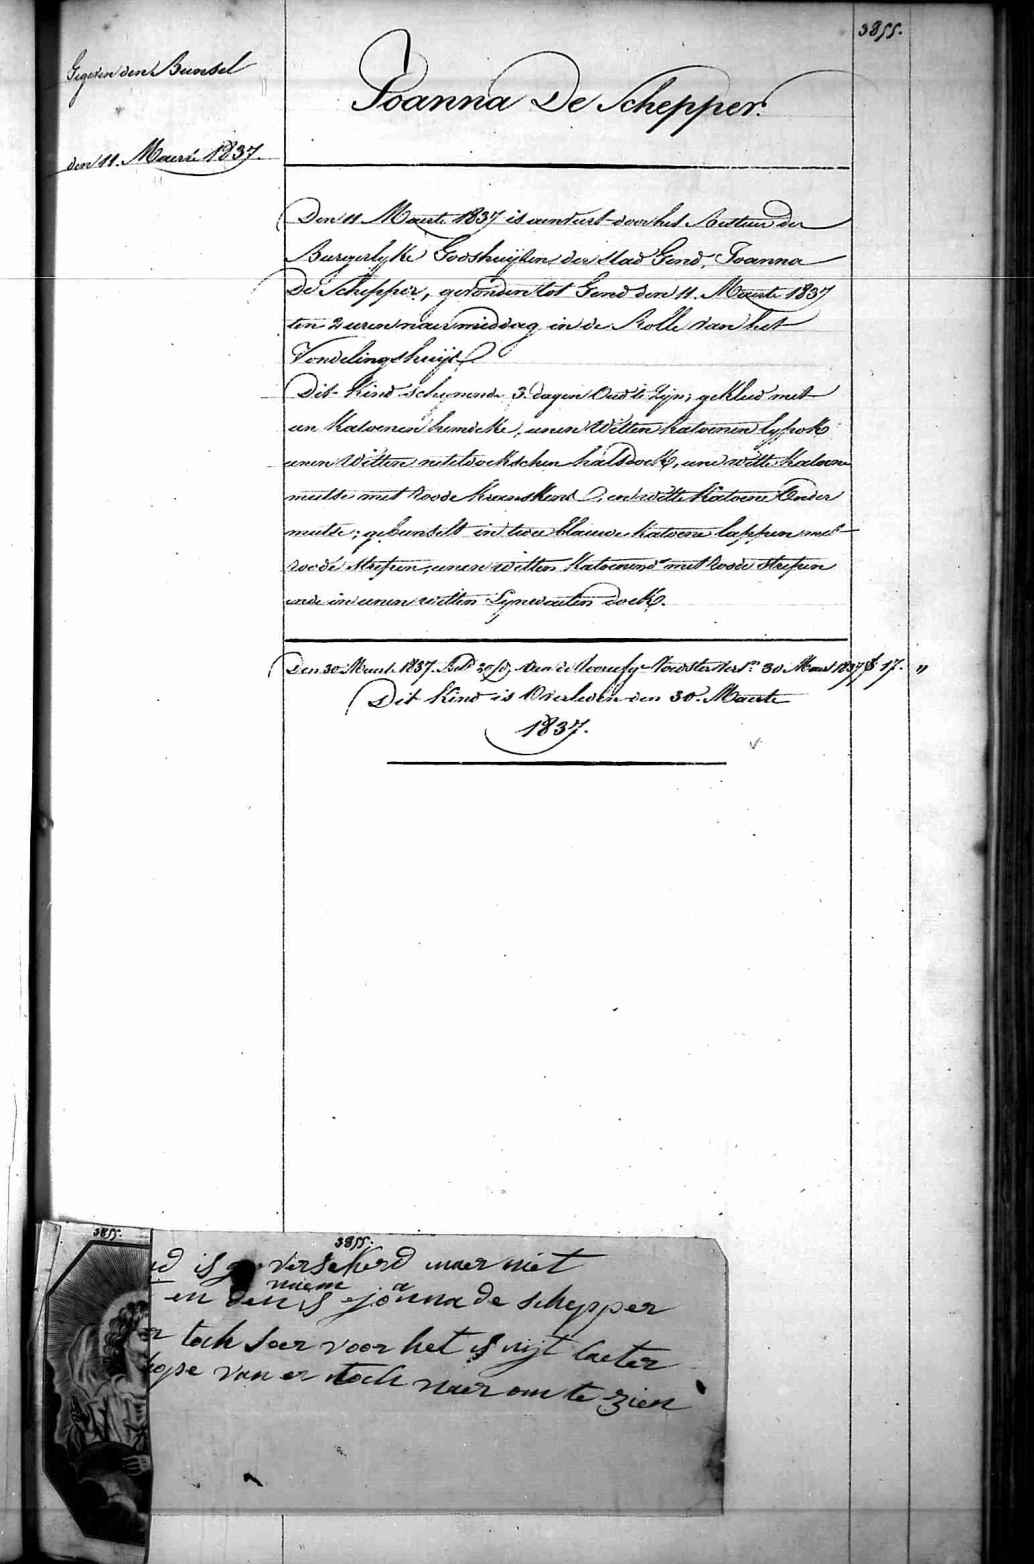 3855.
Gegeven den Bunsel
den 11. Maerte 1837.
Joanna De Schepper.
Den 11 Maerte 1837 is aenveert door het Bestuer der
Burgerlyke Godshuijsen der stad Gend, Joanna
De Schepper, gevonden tot Gend den 11. Maerte 1837
ten 2 uren naermiddag in de Rolle van het
Vondelingshuijs
Dit kind schynende 3. dagen Oud te zyn; gekleed met
een katoenen hemdeke, eenen witten katoenen lyfrok
eenen witten neteldoekschen halsdoek, eene witte katoene
mutse met roode kranskens, eene witte katoene Onder
mutse; gebunselt in twee blauwe katoene lappen met
roode strepen, eenen witten katoenen met roode strepen
ende in eenen witten Lynwaeten doek.
Den 30 Maert 1837. Bet. aen de Voedster 30 Maert 1837 17. "
Dit Kind is Overleden den 30. Maerte
1837.
3855.
3855.
is verSekerd maer niet
naem a
en den is ejonna de schepper
toch Soer voor het is nijt laeter
van er toch naer om te zien